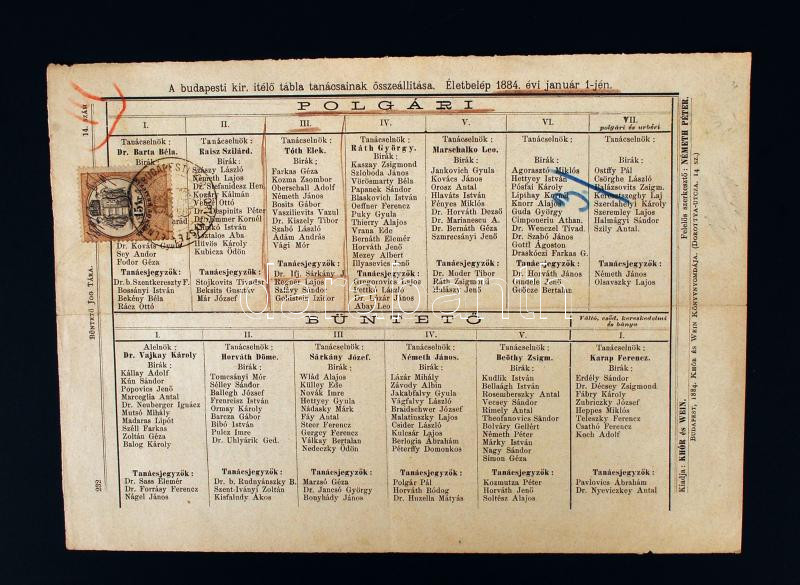 A budapesti kir. itélő tábla tanácsainak összeállítása. Életbelép 1884. évi január 1-jén.
POLGÁRI
I.
Tanácselnök:
Dr. Barta Béla.
Birák:
Dr. Kováts Gyula
Sey Andor
Fodor Géza
Tanácsjegyzők:
Dr. b. Szentkereszty F.
Bossányi István
Bekény Béla
Rácz Ottó
II.
Tanácselnök:
Raisz Szilárd.
Birák:
Szászy László
Németh Lajos
Dr. Stefanidesz Hen.
Kozáry Kálmán
Végh Ottó
Despinits Péter
Zimmer Kornél
István
Hüvös Károly
Kubicza Ödön
Tanácsjegyzők:
Stojkovits Tivadar
Beksits Gusztáv
Már József
III.
Tanácselnök:
Tóth Elek.
Birák:
Farkas Géza
Kozma Zsombor
Oberschall Adolf
Németh János
Bosits Gábor
Vaszilievits Vazul
Dr. Kiszely Tibor
Szabó László
Ádám András
Vági Mór
Tanácsjegyzők:
Dr. Ifj. Sárkány J.
Regner Lajos
Szlávy Sándor
Izidor
IV.
Tanácselnök:
Ráth György.
Birák:
Kaszay Zsigmond
Szloboda János
Vörösmarty Béla
Papanek Sándor
Blaskovich István
Oeffner Ferencz
Puky Gyula
Thierry Alajos
Vrana Ede
Bernáth Elemér
Horváth Jenő
Mezey Albert
Illyasevics Jenő
Tanácsjegyzők:
Gregorovics Lajos
Pettkó László
Dr. Lázár János
Abay Leo
V.
Tanácselnök:
Marschalko Leo.
Birák:
Jankovich Gyula
Kovács János
Orosz Antal
Hlaváts István
Fényes Miklós
Dr. Horváth Dezső
Dr. Marinescu A.
Dr. Bernáth Géza
Szmrecsányi Jenő
Tanácsjegyzők:
Dr. Moder Tibor
Ráth Zsigmond
Halászy Jenő
VI.
Tanácselnök:
Birák:
Agorasztó Miklós
Hettyey István
Pósfai Károly
Lipthay Kornél
Knorr Alajos
Guda György
Cimponeriu Athan.
Dr. Wenczel Tivad.
Dr. Szabó János
Gottl Ágoston
Draskóczi Farkas G.
Tanácsjegyzők:
Dr. Horváth János
Gundelh Jenő
Goöcze Bertalan
VII.
polgári és urbéri
Tanácselnök:
Birák:
Ostffy Pál
Csörghe László
Halászovits Zsigm.
Keresztszeghy Laj
Szerdahelyi Károly
Szeremley Lajos
Halmágyi Sándor
Szily Antal
Tanácsjegyzők:
Németh János
Olsavszky Lajos
BÜNTETŐ
Váltó, csőd, kereskedelmi
és bánya
I.
Alelnök:
Dr. Vajkay Károly
Birák:
Kállay Adolf
Kún Sándor
Popovics Jenő
Marcoglia Antal
Dr. Neuberger Ignácz
Mutsó Mihály
Madarsa Lipót
Széll Farkas
Zoltán Géza
Balog Károly
Tanácsjegyzők:
Dr. Sass Elemér
Dr. Forrásy Ferencz
Nágel János
II.
Tanácselnök:
Horváth Döme.
Birák:
Tomcsányi Mór
Sélley Sándor
Ballegh József
Frenreisz István
Ormay Károly
Barcza Gábor
Bibó István
Pulcz Imre
Dr. Uhlyárik Ged.
Tanácsjegyzők:
Dr. b. Rudnyánszky B.
Szent-Iványi Zoltán
Kisfaludy Ákos
III
Tanácselnök:
Sárkány József.
Birák:
Wlád Alajos
Külley Ede
Novák Imre
Hettyey Gyula
Nádasky Márk
Fáy Antal
Steer Ferencz
Gergey Ferencz
Válkay Bertalan
Nedeczky Ödön
Tanácsjegyzők:
Marzsó Géza
Dr. Jancsó György
Bonyhády János
IV.
Tanácselnök:
Németh János.
Birák:
Lázár Mihály
Závody Albin
Jakabfalvy Gyula
Vágfalvy László
Braidschwer József
Malatinszky Lajos
Csider László
Kulcsár Lajos
Berlogia Ábrahám
Péterffy Domonkos
Tanácsjegyzők:
Polgár Pál
Horváth Bódog
Dr. Huzella Mátyás
V.
Tanácselnök:
Beöthy Zsigm.
Birák:
Kudlik István
Bellaágh István
Rosemberszky Antal
Vecsey Sándor
Rimely Antal
Theofanovics Sándor
Bolváry Gellért
Németh Péter
Márky István
Nagy Sándor
Simon Géza
Tanácsjegyzők:
Kozmutza Péter
Horváth Jenő
Soltész Alajos
I.
Tanácselnök:
Karap Ferencz.
Birák:
Erdély Sándor
Dr. Décsey Zsigmond
Fábry Károly
Zubriczky József
Heppes Miklós
Teleszky Ferencz
Csathó Ferencz
Koch Adolf
Tanácsjegyzők:
Pavlovics Ábrahám
Dr. Nyeviczkey Antal
14. SZÁM.
BÜNTETŐ JOG TÁRA.
232
Kiadja: KHÓR és WEIN.
Felelős szerkesztő: NÉMETH PÉTER.
BUDAPEST, 1884. KHÓR ÉS WEIN KÖNYVNYOMDÁJA. (DOROTTYA-UTCZA. 14 SZ.)
BUDAPEST
15 Kr.
3/
darabanth